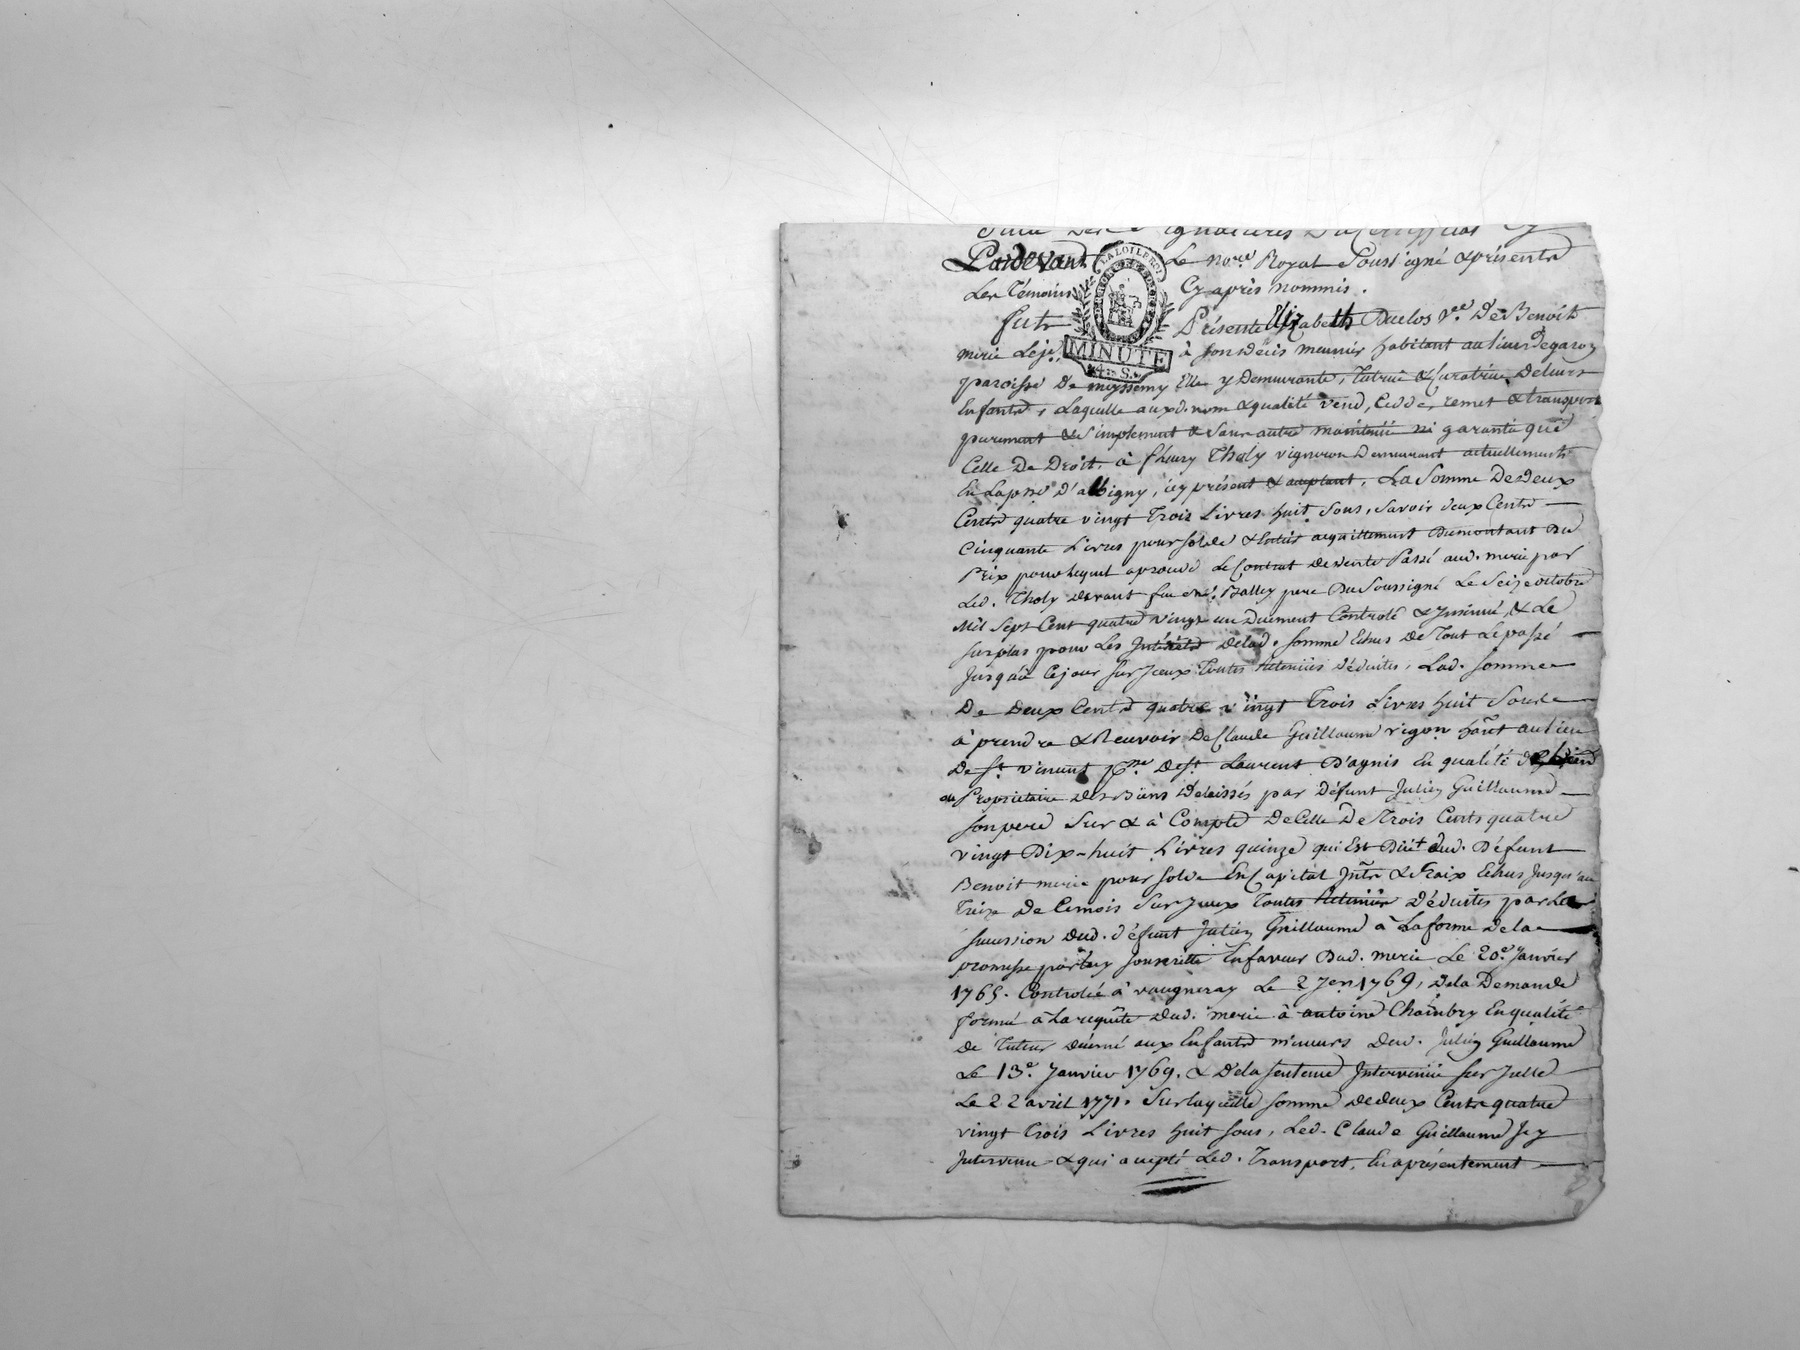 Pardevant Le no.re Royal Soussigné & présents
LA LOI LE ROI
Les Témoins Cy après nommés.
fute Présente Elizabeth Duclos v.ve De Benoit
MINUTE
4. S.
merie Leje. à fons décès meunier habitant au lieu Degaroy
paroisse De meyssemy Elle y Demeurante, Tutrice & Curatrice Deleurs
Enfants, Laquelle auxd. nom & qualité vend, Cedde, remet & transporte
purement & Simplement & Sans autre maintenüe ni garantie que
Celle De Droit, à fleury Tholy vigneron Demeurant actuellement
En Lapsse D'albigny, icy présent & acceptant, La Somme De Deux
Cents quatre vingt Trois Livres huit Sous, Savoir deux Cents
Cinquante Livres pour solde & Entier acquittement Dumontant Du
Prix pour lequel aprouvé Le Contrat De vente Passé aud. merie par
Led. Tholy devant feu me. Balley pere Du Soussigné Le Seize octobre
Mil Sept Cent quatre vingt un Duement Controlé & Insinué, & Le
Surplus pour Les Intérêts Delad. somme Echus De Tout Le passé
Jusqu'à Cejour sur Jceux Toutes Retenües Déduites, Lad. Somme
De Deux Cents quatre vingt Trois Livres huit Sous
à prendre & Recevoir De Claude Guillaume vigon hant au lieu
De St. vincent psse De St. Laurent D'agnis En qualité
ou Propriétaire Des Biens Delaissés par Défunt Julien Guillaume
Son pere Sur & à Compte De Celle De Trois Cents quatre
vingt Dix-huit Livres quinze qui Est Düe aud. Défunt
Benoit merie pour solde En Capital Jnts & Fraix Echus Jusqu'au
Treize De Cemois Sur Jceux Toutes Retenües Déduites par La
Succession Dud. défunt Julien Guillaume à La forme De la
promesse par luy souscritte En faveur Dud. merie Le 20e. Janvier
1765. Controlée à vaugneray Le 2 Jer 1769, Dela Demande
formée à La requête Dud. merie à antoine Chambry En qualité
De Tuteur décerné aux Enfants mineurs Dud. Julien Guillaume
Le 13e. Janvier 1769. & Dela Sentence Intervenüe sur Jcelle
Le 22 avril 1771. Sur laquelle somme De deux Cents quatre
vingt Trois Livres huit Sous, Led. Claude Guillaume Jcy
Intervenu & qui accepté Led. Transport, En a présentement